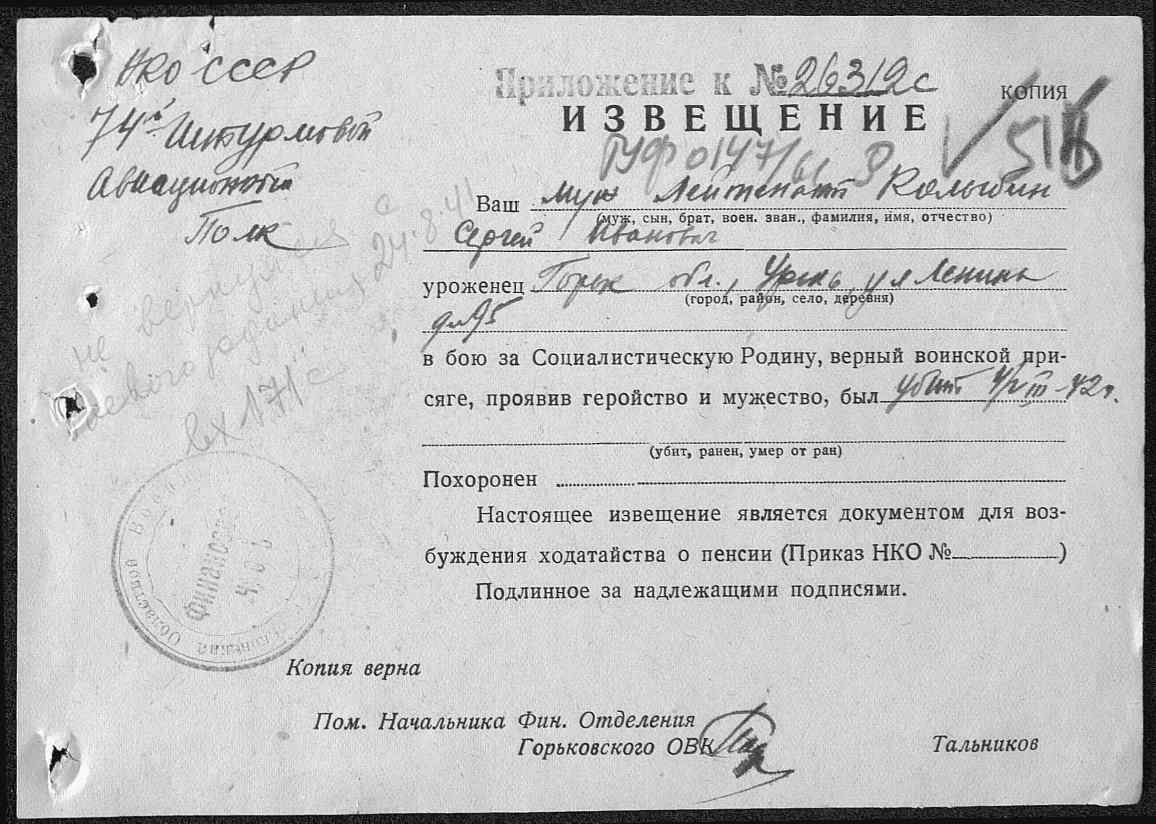 НКО СССР
74й Штурмовой
Авиационный
Полк
Приложение к № 26312с
копия
ИЗВЕЩЕНИЕ
518
Ваш муж Лейтенант Колыбин
(муж, сын, брат, воен. зван., фамилия, имя, отчество)
Сергей Иванович
уроженец Горьк обл., Урень, ул Ленина
(город, район, село, деревня)
д. 95
в бою за Социалистическую Родину, верный воинской при-
сяге, проявив геройство и мужество, был убит III-42г.
(убит, ранен, умер от ран)
Похоронен
Настоящее извещение является документом для воз-
буждения ходатайства о пенсии (Приказ НКО № )
Подлинное за надлежащими подписями.
не вернулся с
боевого задания 24.8.41
вх 171с
Финансовое
Копия верна
Пом. Начальника Фин. Отделения
Горьковского ОВК
Тальников